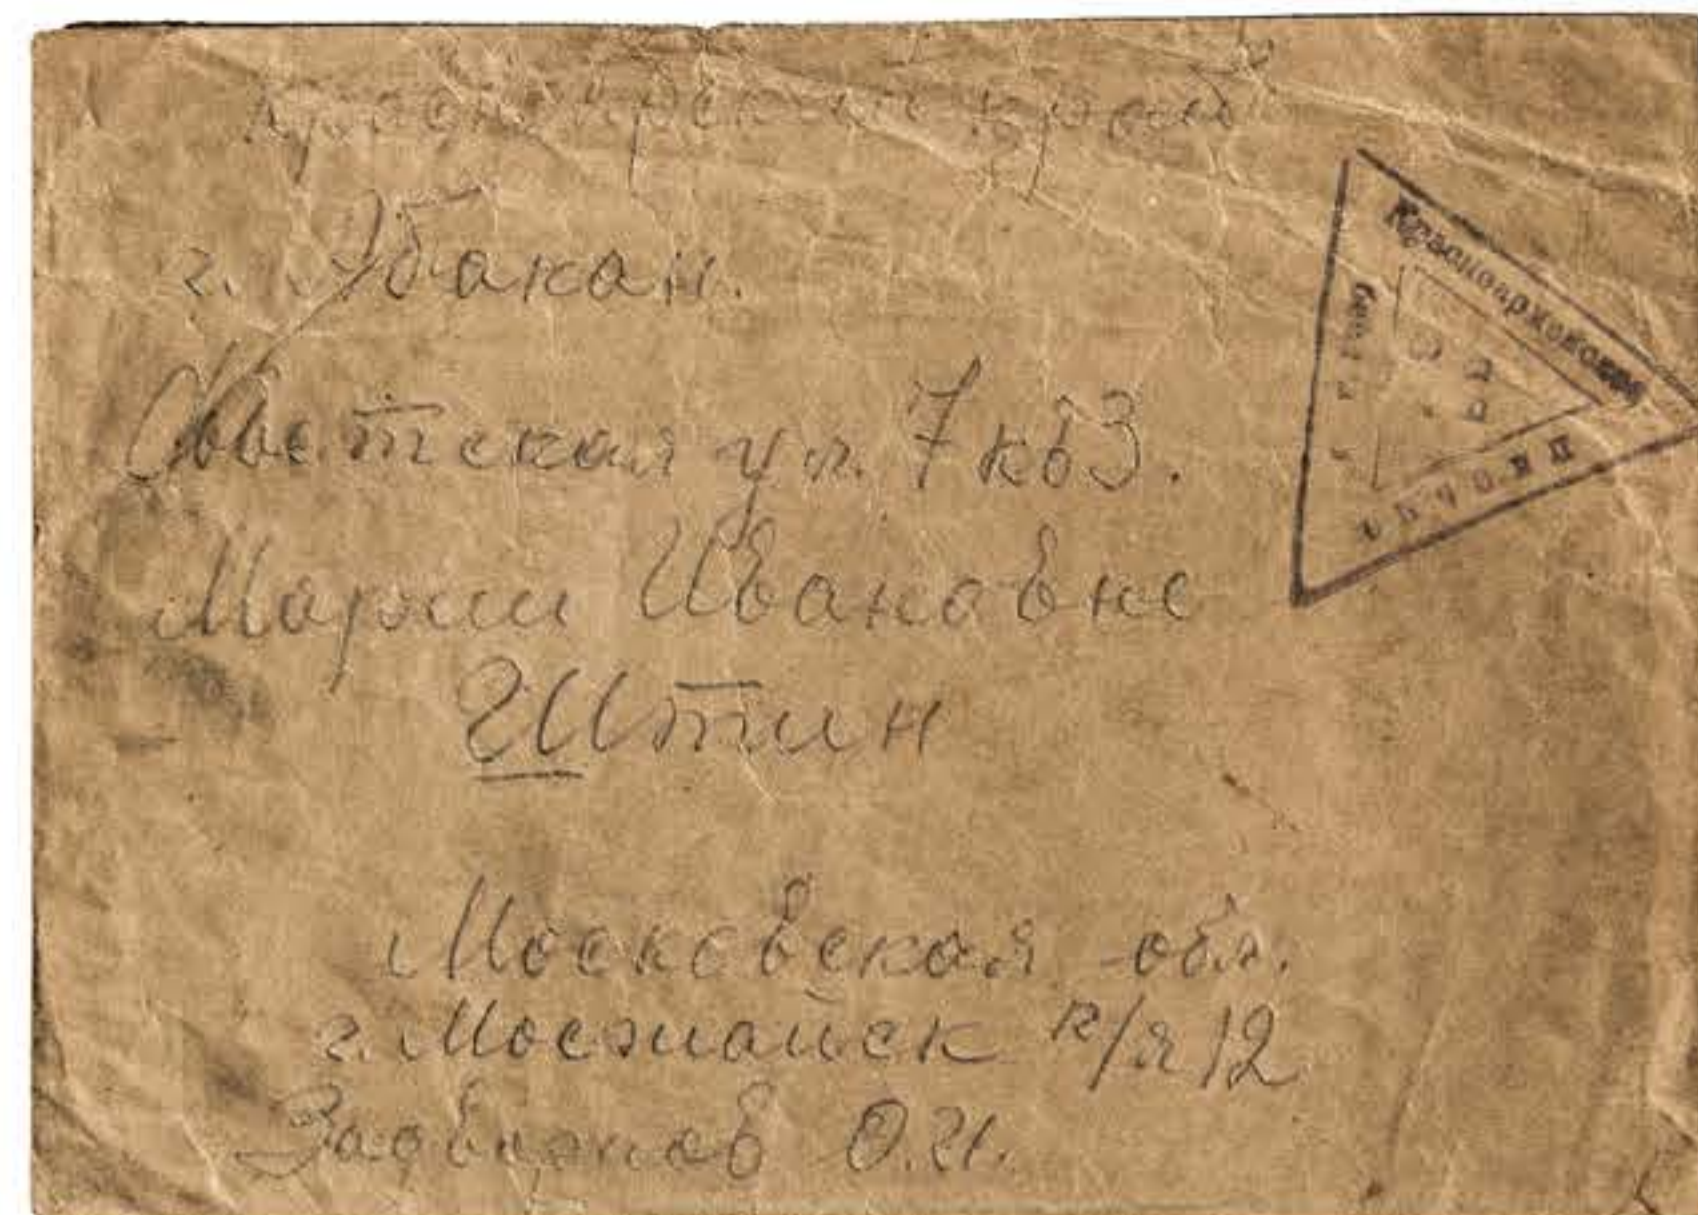 Красноярский край
г. Абакан.
Советская ул. 7 кв 3.
Марии Ивановне
Штин
Московская обл.
г. Можайск п/я 12
О.И.
Красноармейское
письмо